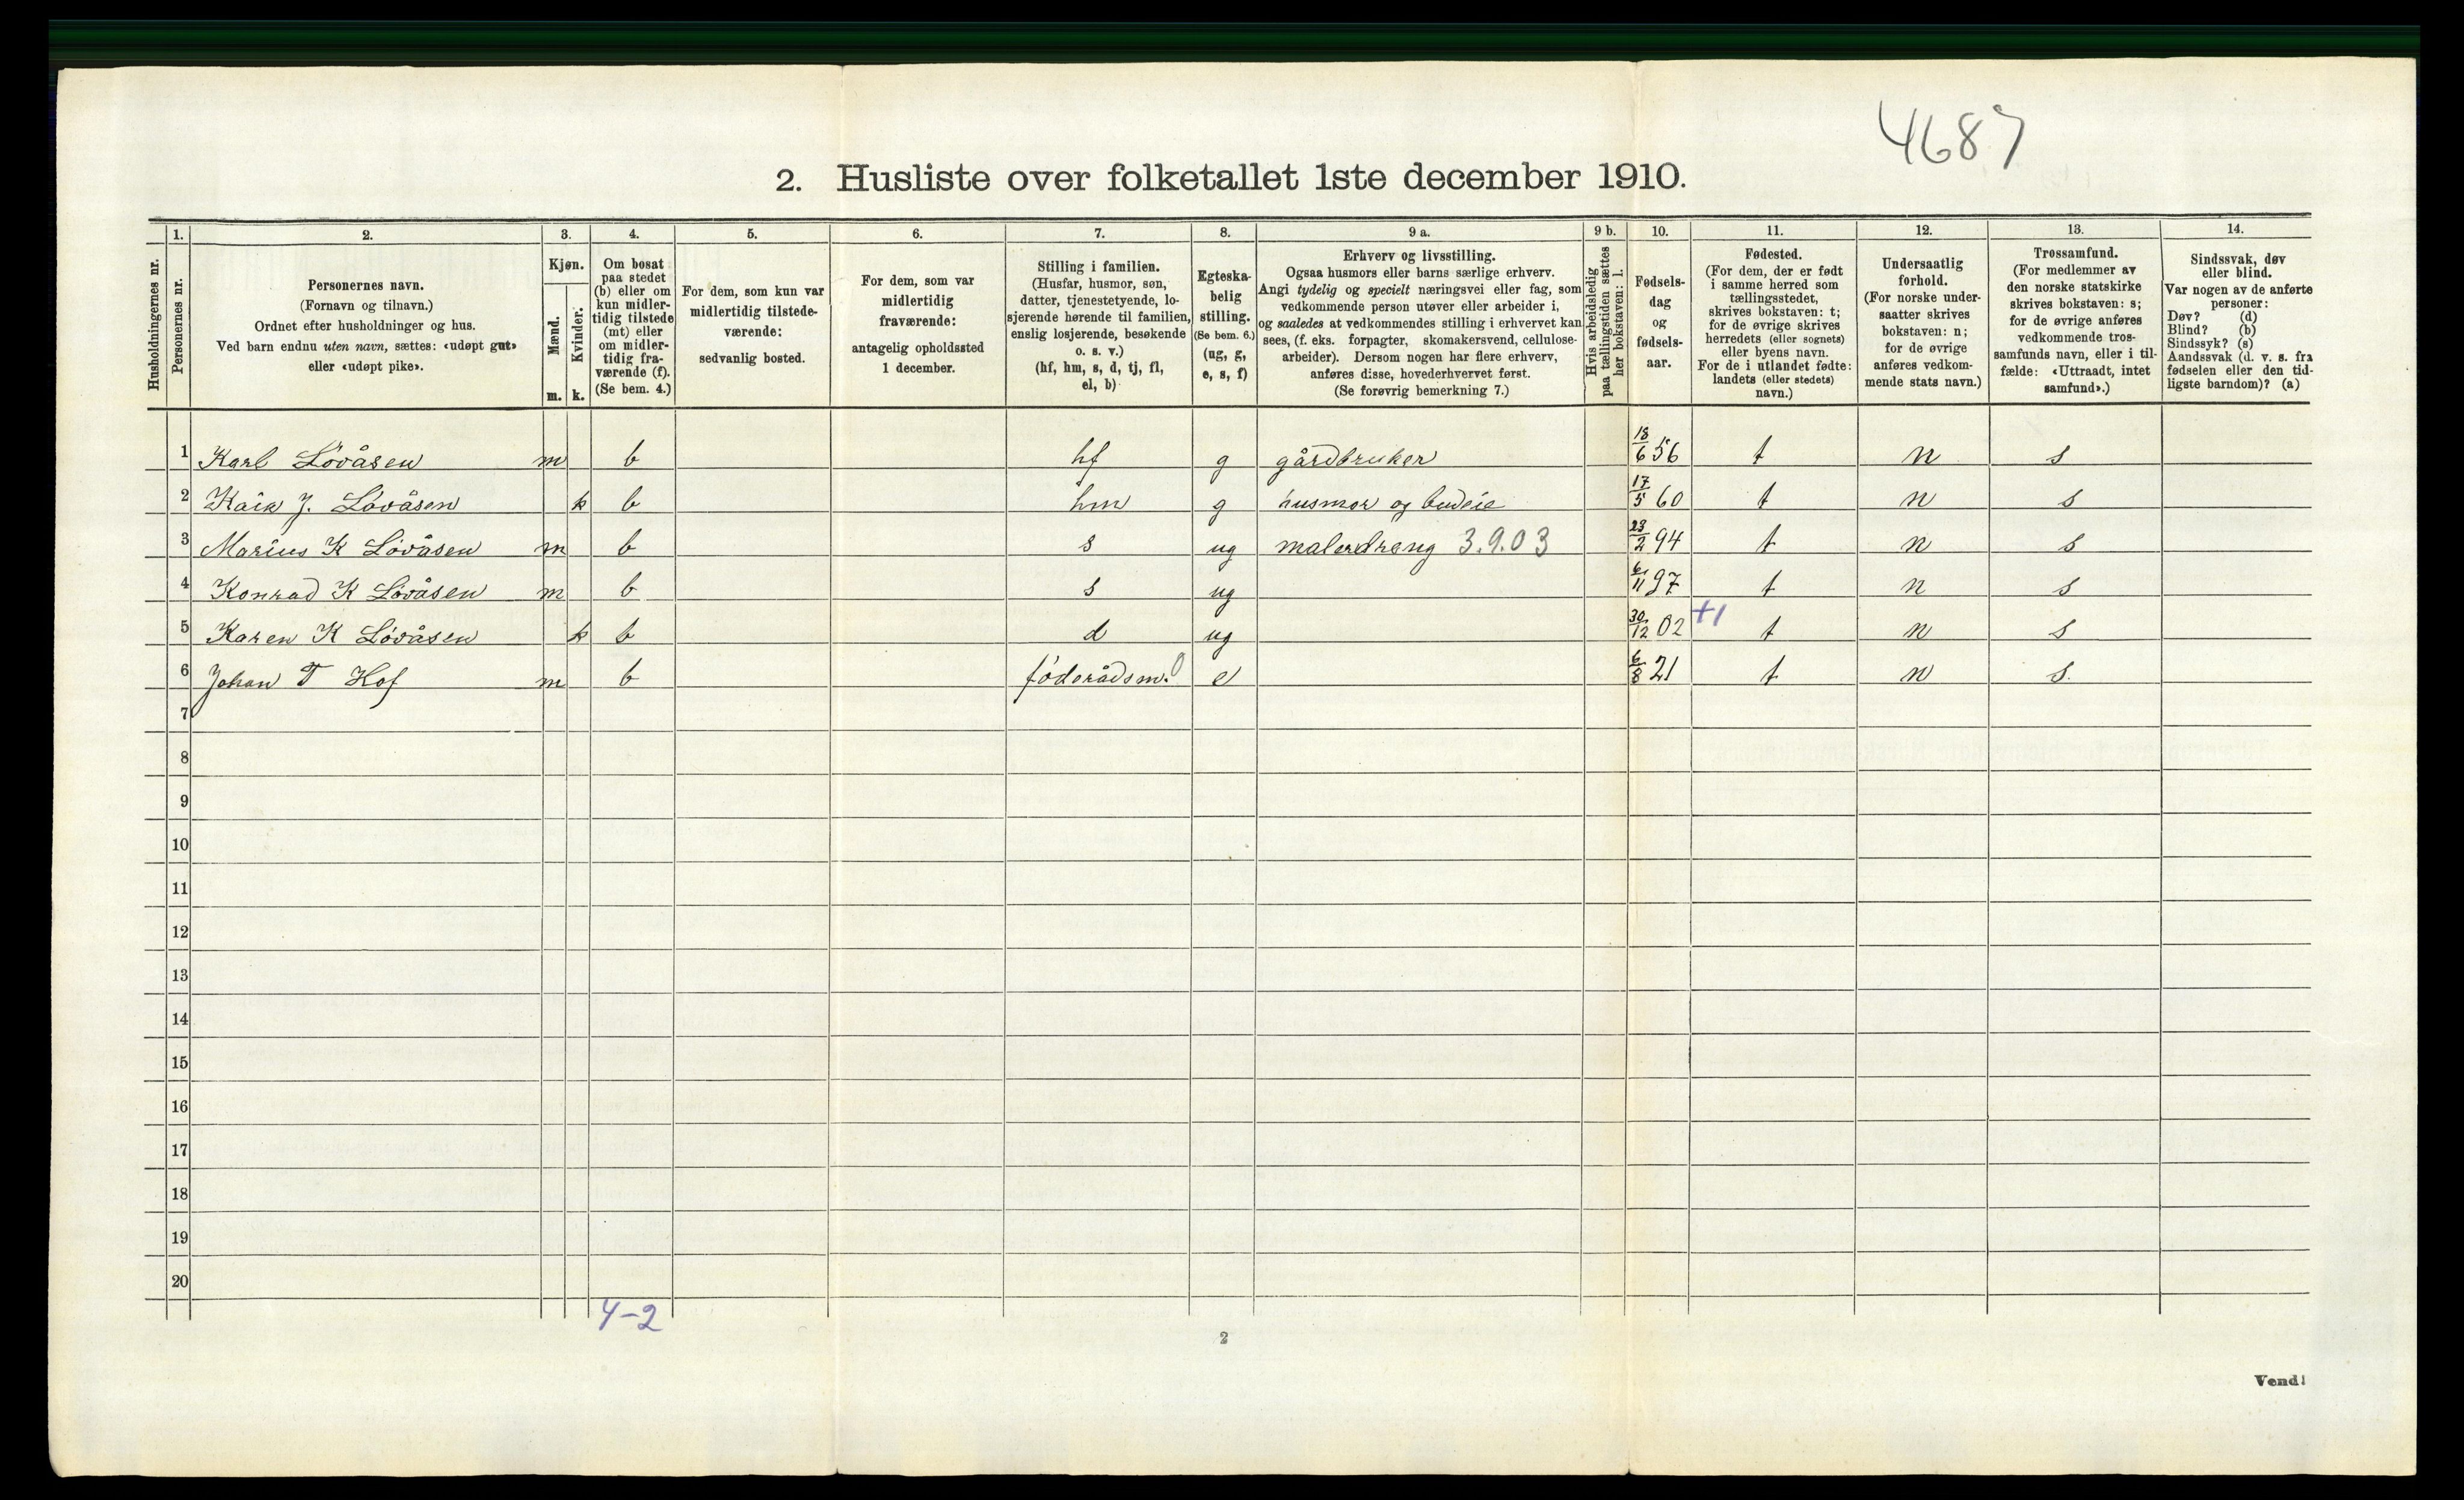 4687
2. Husliste over folketallet 1ste december 1910.
1. 2. 3. 4. 5. 6. 7. 8. 9 a. 9 b. 10. 11. 12. 13. 14.
Husholdningernes nr.
Personernes nr.
Personernes navn.
(Fornavn og tilnavn.)
Ordnet efter husholdninger og hus.
Ved barn endnu uten navn, sættes: «udøpt gut»
eller «udøpt pike».
Kjøn.
Mænd.
m.
Kvinder.
k.
Om bosat
paa stedet
(b) eller om
kun midler-
tidig tilstede
(mt) eller
om midler-
tidig fra-
værende (f).
(Se bem. 4.)
For dem, som kun var
midlertidig tilstede-
værende:
sedvanlig bosted.
For dem, som var
midlertidig
fraværende:
antagelig opholdssted
1 december.
Stilling i familien.
(Husfar, husmor, søn,
datter, tjenestetyende, lo-
sjerende hørende til familien,
enslig losjerende, besøkende
o. s. v.)
(hf, hm, s, d, tj, fl,
el, b)
Egteska-
belig
stilling.
(Se bem. 6.)
(ug, g,
e, s, f)
Erhverv og livsstilling.
Ogsaa husmors eller barns særlige erhverv.
Angi tydelig og specielt næringsvei eller fag, som
vedkommende person utøver eller arbeider i,
og saaledes at vedkommendes stilling i erhvervet kan
sees, (f. eks. forpagter, skomakersvend, cellulose-
arbeider). Dersom nogen har flere erhverv,
anføres disse, hovederhvervet først.
(Se forøvrig bemerkning 7.)
Hvis arbeidsledig
paa tællingstiden sættes
her bokstaven: l.
Fødsels-
dag
og
fødsels-
aar.
Fødested.
(For dem, der er født
i samme herred som
tællingsstedet,
skrives bokstaven: t;
for de øvrige skrives
herredets (eller sognets)
eller byens navn.
For de i utlandet fødte:
landets (eller stedets)
navn.)
Undersaatlig
forhold.
(For norske under-
saatter skrives
bokstaven: n;
for de øvrige
anføres vedkom-
mende stats navn.)
Trossamfund.
(For medlemmer av
den norske statskirke
skrives bokstaven: s;
for de øvrige anføres
vedkommende tros-
samfunds navn, eller i til-
fælde: «Uttraadt, intet
samfund».)
Sindssvak, døv
eller blind.
Var nogen av de anførte
personer:
Døv? (d)
Blind? (b)
Sindssyk? (s)
Aandssvak (d. v. s. fra
fødselen eller den tid-
ligste barndom)? (a)
1 Karl Lövåsen m b hf g gårdbruker 18/6 56 t n s
2 J. Lövåsen k b hm g husmor og budeie 17/5 60 t n s
3 Marius K Lövåsen m b s ug malerdreng 3.9.03 23/2 94 t n s
4 Konrad K Lövåsen m b s ug 6/11 97 t n s
5 Karen K Lövåsen k b d ug 30/12 02 +1 t n s
6 Johan T Hof m b föderådsm. 0 e 6/8 21 t n s.
7
8
9
10
11
12
13
14
15
16
17
18
19
20
4-2
2
Vend!